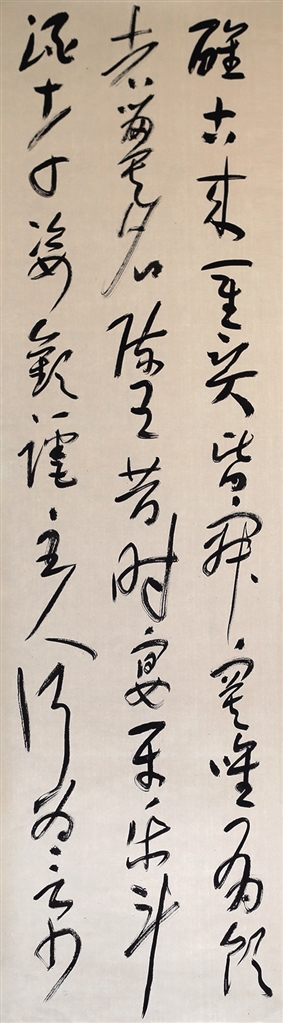 醒古來聖賢皆寂寞唯有飲
者留其名陳王昔時宴平樂斗
酒十千恣歡謔主人何為言少